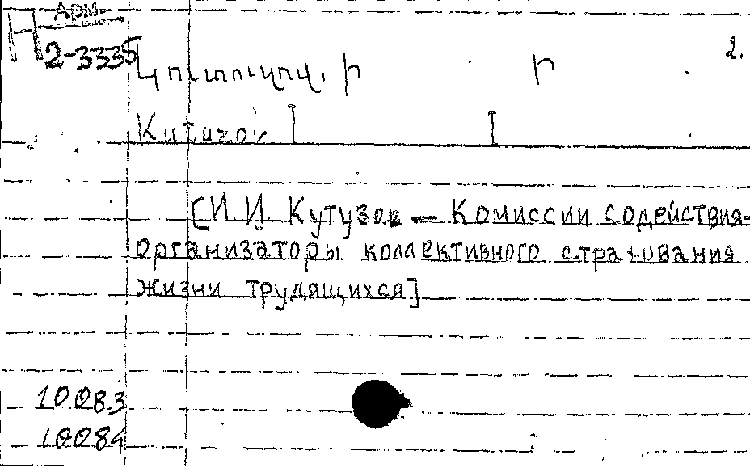 АРМ
Н 2-3335
2.
Կուտուզով, Ի Ի
Kutuzov I I
[И. И. Кутузов — Комиссии содействия-
организаторы коллективного страхования
жизни трудящихся]
10083
10084